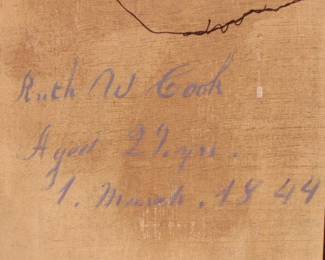 Ruth W Cook
Aged 21 yrs.
1. March. 1844